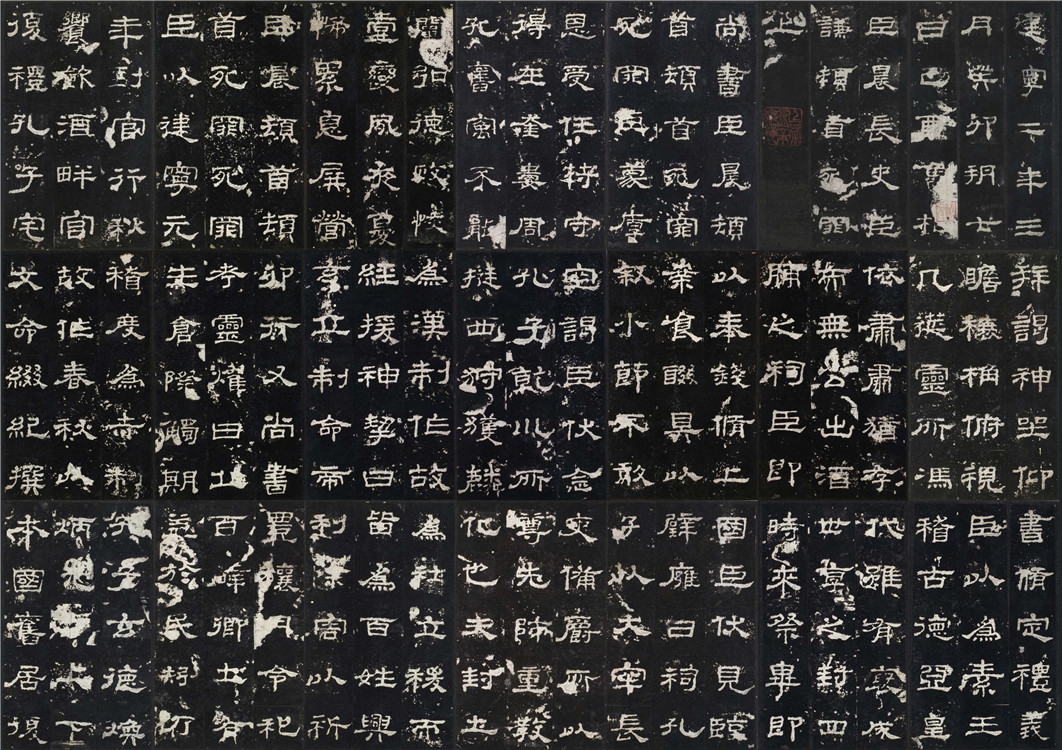 建寧二年三
月癸卯朔七
日己酉魯相
臣晨長史臣
謙頓首死罪
上
尚書臣晨頓
首頓首死罪
死罪臣蒙厚
恩受任符守
得在奎婁周
孔舊寓不能
闡弘德政恢
壹變夙夜憂
怖累息屏營
臣晨頓首頓
首死罪死罪
臣以建寧元
年到官行秋
饗飲酒畔宮
復禮孔子宅
拜謁神坐仰
瞻榱桷俯視
几筵靈所馮
依肅肅猶存
而無公出酒
脯之祠臣即
以奉錢脩上
案食醊具以
叙小節不敢
空謁臣伏念
孔子乾巛所
挺西狩獲麟
為漢制作故
經援神挈曰
玄丘制命帝
卯行又尚書
考靈燿曰丘
生倉際觸期
稽度為赤制
故作春秋以
文命綴紀撰
書脩定禮義
臣以為素王
稽古德亞皇
代雖有褒成
世享之封四
時來祭畢即
國臣伏見臨
辟雍日祠孔
子以大宰長
吏備爵所以
尊先師重教
化也夫封土
為社立稷而
皆為百姓興
利除害以祈
豐穰月令祀
百辟卿士有
益於民矧乃
孔子玄德煥
炳光於上下
本國舊居復